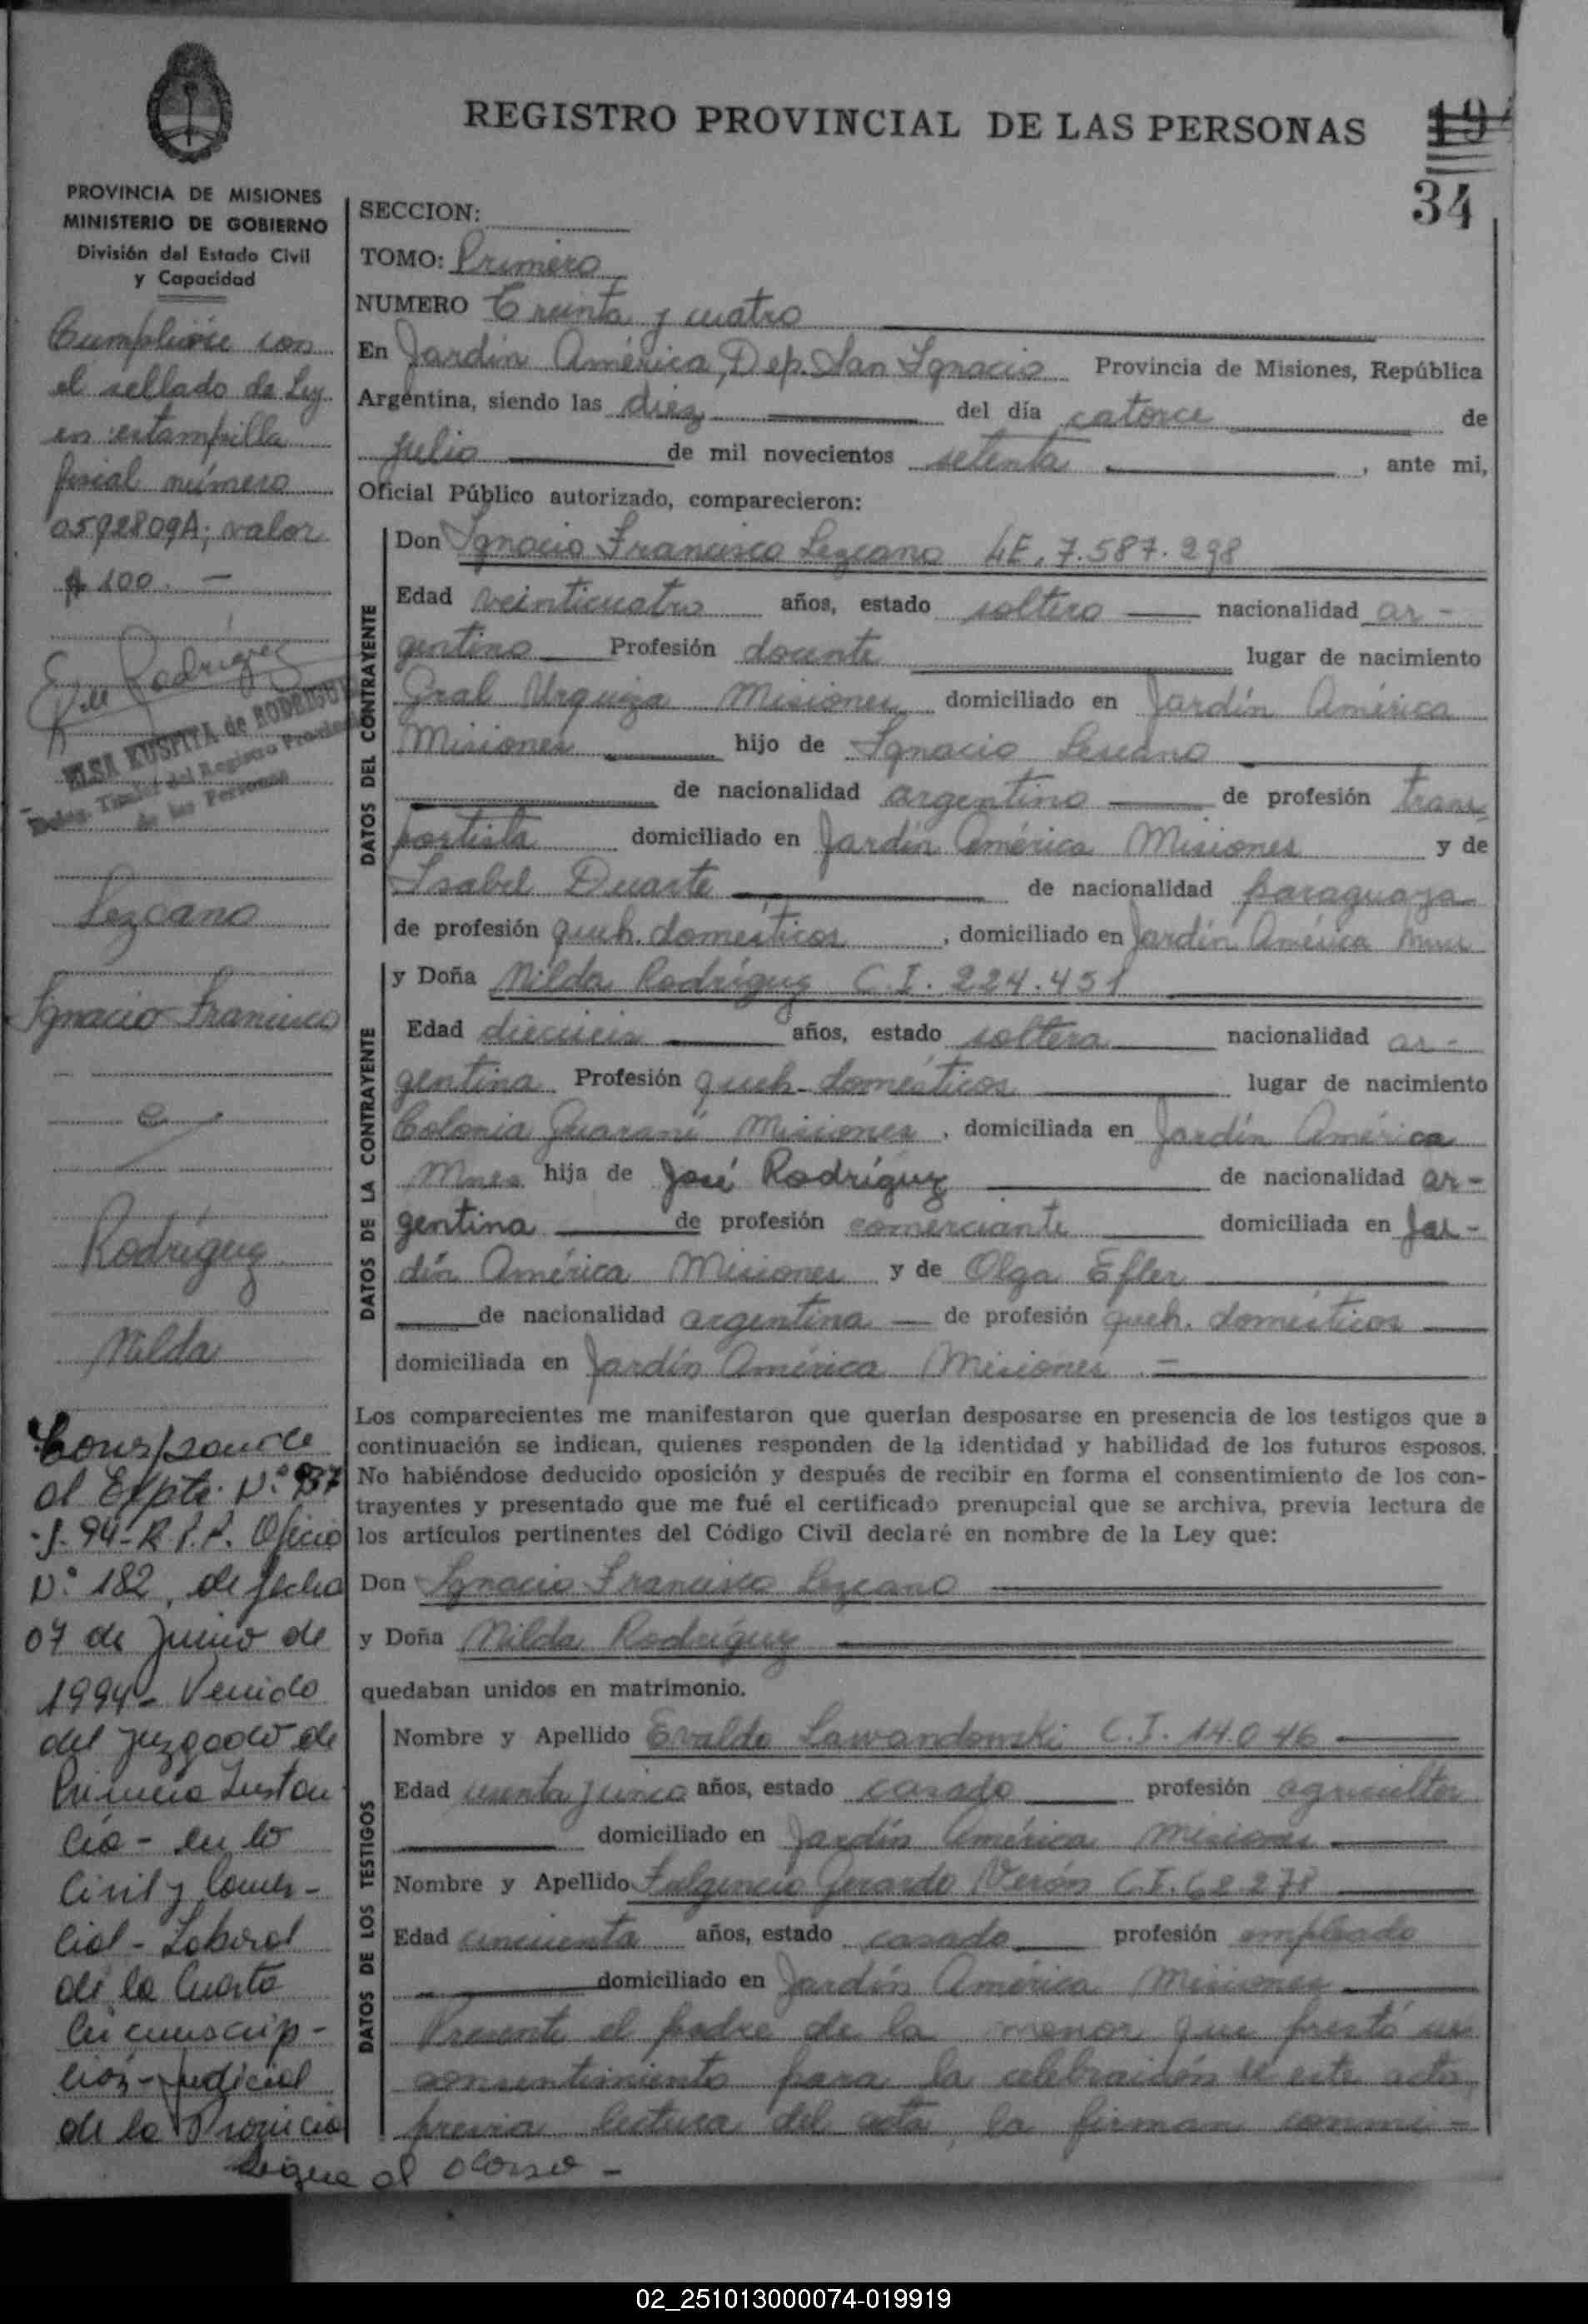 REGISTRO PROVINCIAL DE LAS PERSONAS
34
PROVINCIA DE MISIONES
MINISTERIO DE GOBIERNO
División del Estado Civil
y Capacidad
Cumplióse con
el sellado de Ley
en estampilla
fiscal número
0592809A; valor
$ 100.-
E. R. de Rodríguez
ELSA KUSPITA de RODRIGUEZ
del Registro Provincial
de las Personas
Lezcano
Ignacio Francisco
e
Rodríguez
Nilda
Corresponde
al Expte. N.º 937
-J- 94- R.P.P. Oficio
N.º 182, de fecha
07 de Junio de
1994- Venido
del Juzgado de
Primera Instan
cia- en lo
Civil y Comer-
cial- Laboral
de la Cuarta
Circunscrip-
ción-Judicial
de la Provincia
Sigue al dorso -
SECCION:
TOMO: Primero
NUMERO Treinta y cuatro
En Jardín América, Dep. San Ignacio Provincia de Misiones, República
Argentina, siendo las diez del día catorce de
julio de mil novecientos setenta, ante mi,
Oficial Público autorizado, comparecieron:
DATOS DEL CONTRAYENTE
Don Ignacio Francisco Lezcano LE. 7.587.298
Edad veinticuatro años, estado soltero nacionalidad ar-
gentino Profesión docente lugar de nacimiento
Gral Urquiza Misiones domiciliado en Jardín América
Misiones hijo de Ignacio Lescano
de nacionalidad argentino de profesión trans
portista domiciliado en Jardín América Misiones y de
Isabel Duarte de nacionalidad paraguaya
de profesión queh. domésticos, domiciliado en Jardín América Mnes
DATOS DE LA CONTRAYENTE
y Doña Nilda Rodríguez C.I. 224.451
Edad dieciseis años, estado soltera nacionalidad ar-
gentina Profesión queh. domésticos lugar de nacimiento
Colonia Guaraní Misiones, domiciliada en Jardín América
Mnes hija de José Rodríguez de nacionalidad ar-
gentina de profesión comerciante domiciliada en Jar-
dín América Misiones y de Olga Efler
de nacionalidad argentina de profesión queh. domésticos
domiciliada en Jardín América Misiones.-
Los comparecientes me manifestaron que querían desposarse en presencia de los testigos que a
continuación se indican, quienes responden de la identidad y habilidad de los futuros esposos.
No habiéndose deducido oposición y después de recibir en forma el consentimiento de los con-
trayentes y presentado que me fué el certificado prenupcial que se archiva, previa lectura de
los artículos pertinentes del Código Civil declaré en nombre de la Ley que:
Don Ignacio Francisco Lezcano
y Doña Nilda Rodríguez
quedaban unidos en matrimonio.
DATOS DE LOS TESTIGOS
Nombre y Apellido Evaldo Lawandowski C.I. 14.046
Edad y cinco años, estado casado profesión agricultor
domiciliado en Jardín América Misiones
Nombre y Apellido Fulgencio Gerardo Verón C.I. 62.278
Edad cincuenta años, estado casado profesión empleado
domiciliado en Jardín América Misiones
Presente el padre de la menor que prestó su
consentimiento para la celebración de este acto
previa lectura del acta, la firman conmi-
02_251013000074-019919